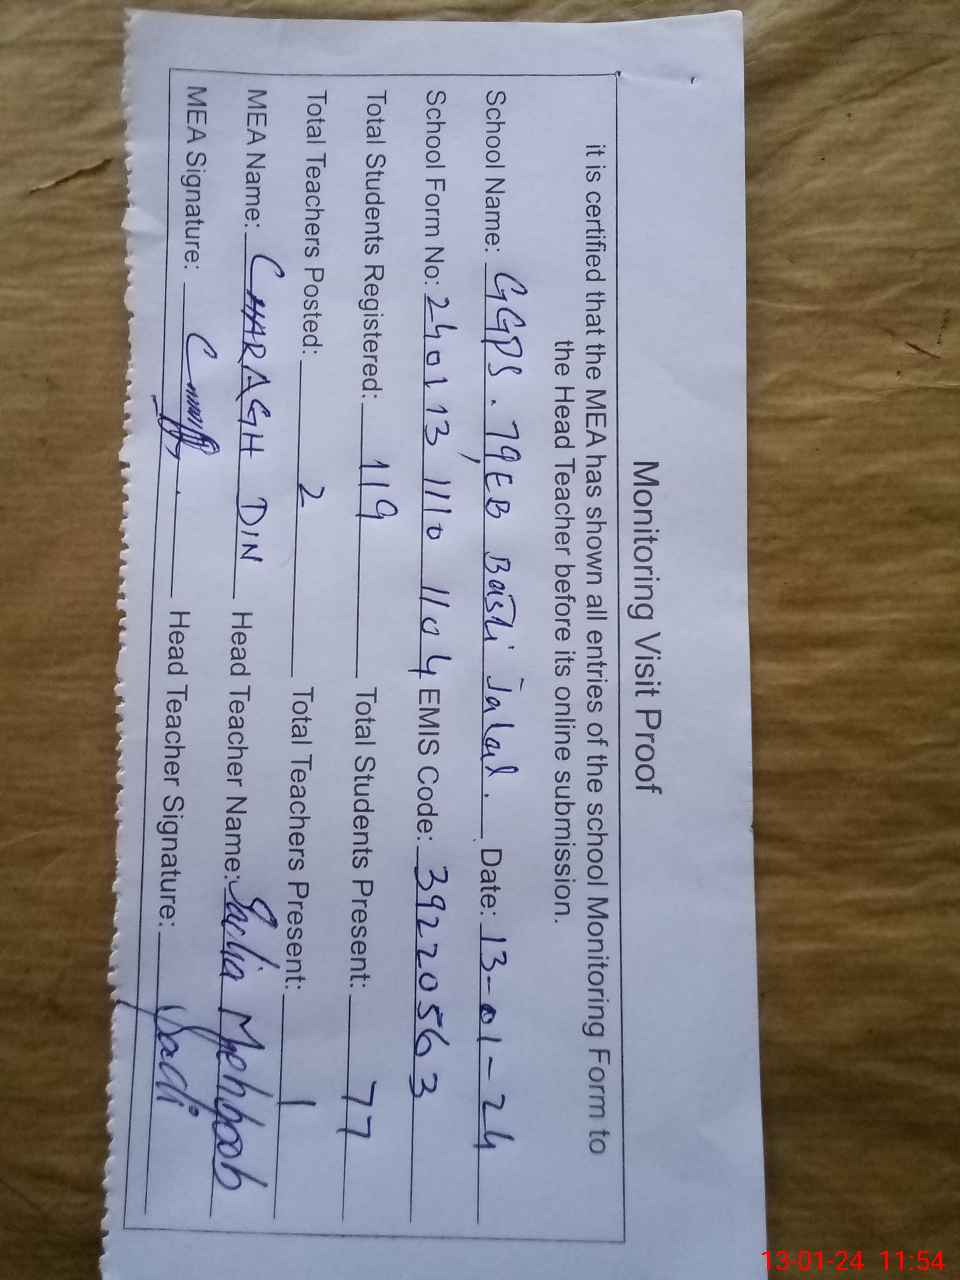 Monitoring Visit Proof
it is certified that the MEA has shown all entries of the school Monitoring Form to
the Head Teacher before its online submission.
School Name: GGPS. 79EB Basti Jalal. Date: 13-01-24
School Form No: 240113 1110 1104 EMIS Code: 39220563
Total Students Registered: 119 Total Students Present: 77
Total Teachers Posted: 2 Total Teachers Present: 1
MEA Name: CHARAGH DIN Head Teacher Name: Sadia Mehboob
MEA Signature: Head Teacher Signature: Sadi
13-01-24 11:54